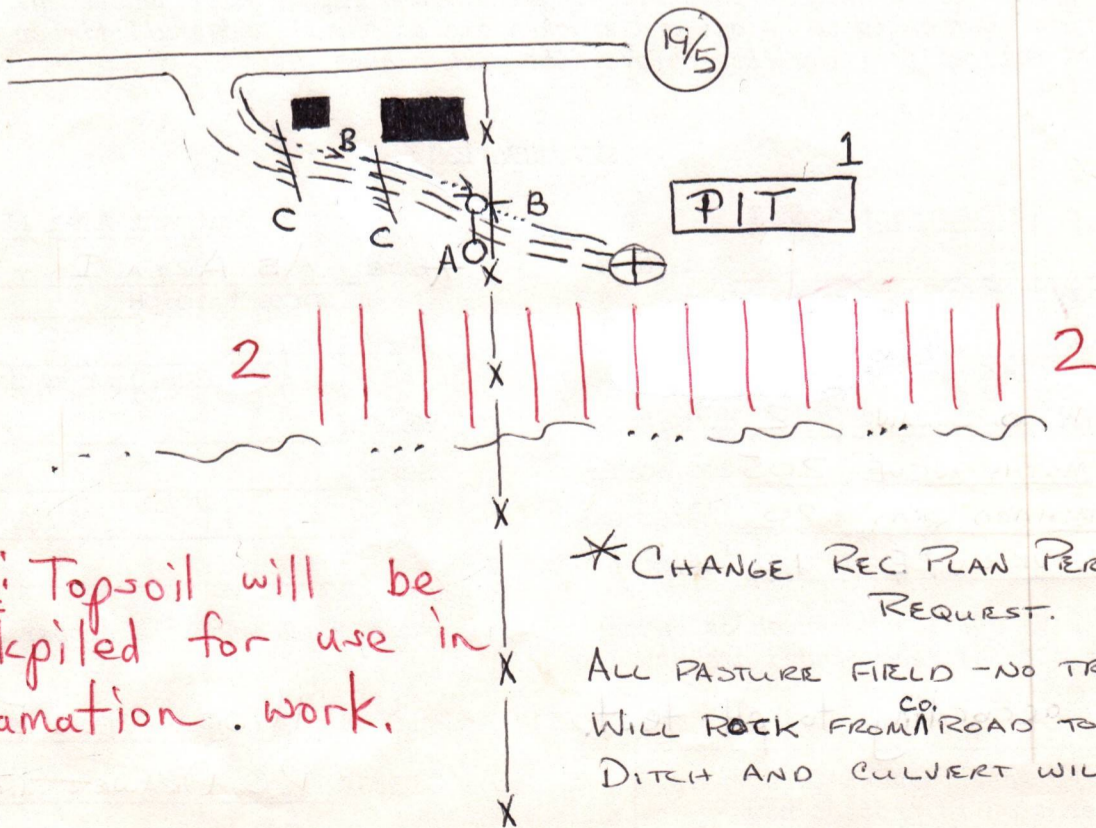 19/5
B
1
PIT
C
C
B
A
2
2
: Topsoil will be
kpiled for use in
amation . work.
* CHANGE REC. PLAN PER
REQUEST.
ALL PASTURE FIELD - NO TR
WILL ROCK FROM CO. ROAD TO
DITCH AND CULVERT WIL